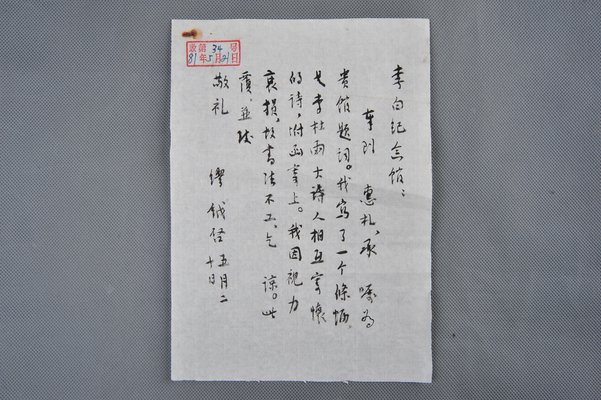 李白纪念馆：
奉到 惠札，承 嘱为
贵馆题词。我寫了一个條幅，
是李杜兩大诗人相互寄懷
的诗，附函寄上。我因視力
衰损，故書法不工，乞 諒。此
覆，並致
敬礼
缪鉞启 五月二
十日
第34号
81年5月21日